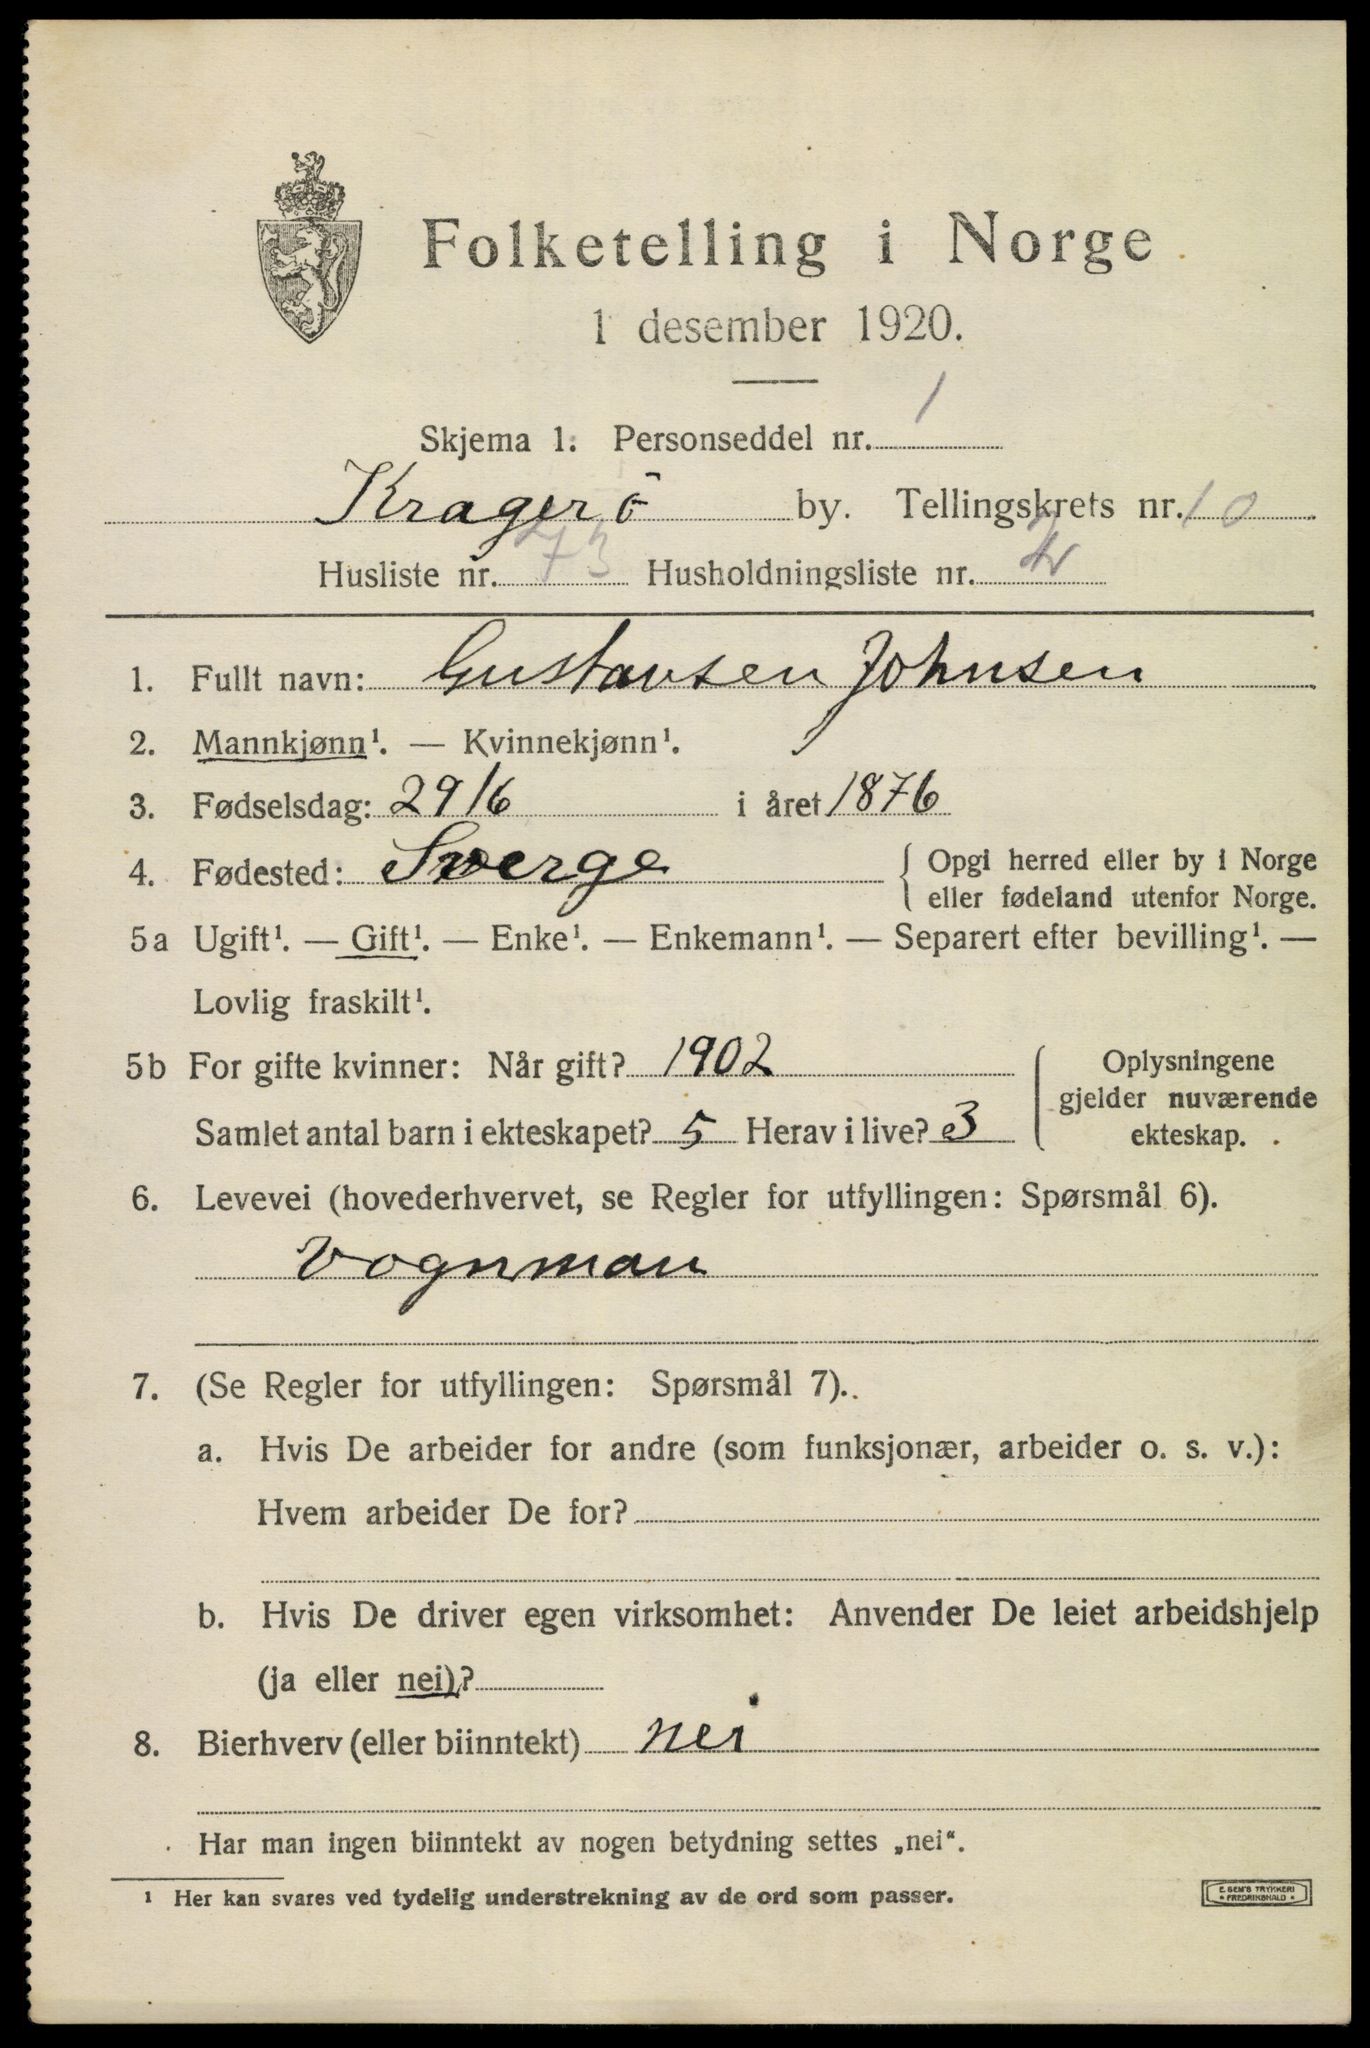 Folketelling i Norge
1 desember 1920.
Skjema 1. Personseddel nr. 1
Kragerö by. Tellingskrets nr. 10
Husliste nr. 73 Husholdningsliste nr.
1. Fullt navn: Gustavsen Johnsen
2. Mannkjønn¹. — Kvinnekjønn¹.
3. Fødselsdag: 29/6 i året 1876
4. Fødested: Sverge { Opgi herred eller by i Norge
eller fødeland utenfor Norge.
5a Ugift¹. — Gift¹. — Enke¹. — Enkemann¹. — Separert efter bevilling¹. —
Lovlig fraskilt¹.
5b For gifte kvinner: Når gift? 1902
Samlet antal barn i ekteskapet? 5 Herav i live? 3
{ Oplysningene
gjelder nuværende
ekteskap.
6. Levevei (hovederhvervet, se Regler for utfyllingen: Spørsmål 6).
Vognman
7. (Se Regler for utfyllingen: Spørsmål 7).
a. Hvis De arbeider for andre (som funksjonær, arbeider o. s. v.):
Hvem arbeider De for?
b. Hvis De driver egen virksomhet: Anvender De leiet arbeidshjelp
(ja eller nei)?
8. Bierhverv (eller biinntekt) nei
Har man ingen biinntekt av nogen betydning settes „nei“.
¹ Her kan svares ved tydelig understrekning av de ord som passer.
E. SEM'S TRYKKERI
* FREDRIKSHALD *